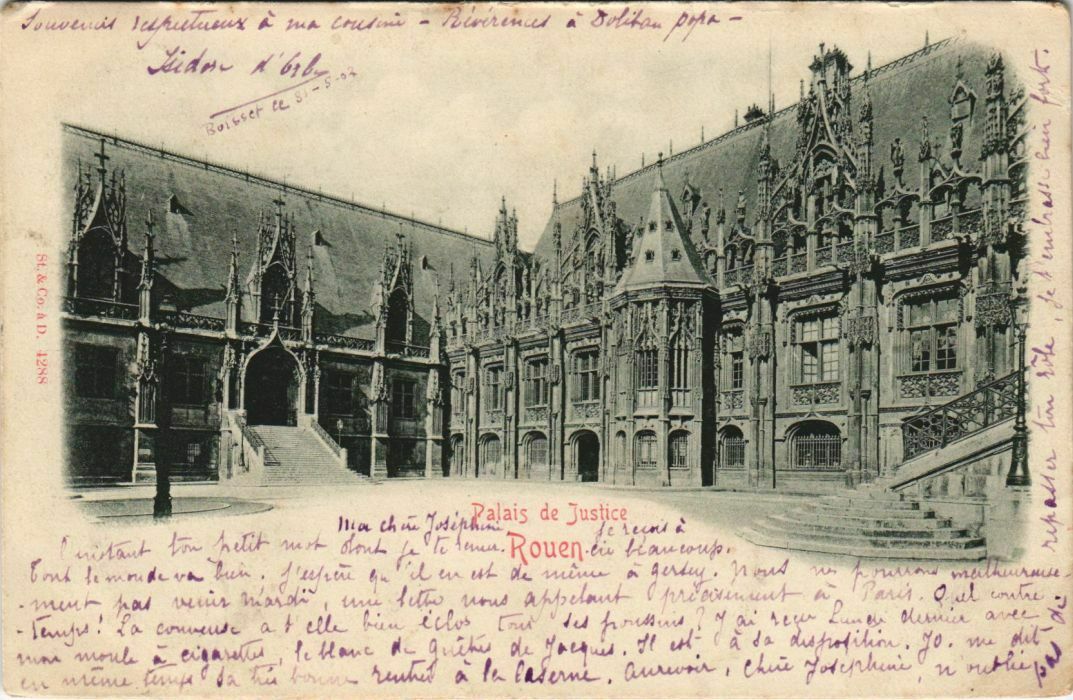 Souvenir respectueux à ma cousine - Révérences à Doliban papa -
Isidore d'
Boisset le 31-5-02
St. & Co. à D. 4288
Palais de Justice
Rouen
Ma chère Joséphine je reçois à
l'instant ton petit mot dont je te remercie beaucoup.
Tout le monde va bien. J'espère qu'il en est de même à gersey. Nous ne pourrons malheureuse-
-ment pas venir mardi, une lettre nous appelant précisement à Paris. Quel contre
-temps! La couveuse a t'elle bien éclos tous ses poussins? J'ai reçu Lundi dernier avec
mon moule à cigarettes, le blanc de guêtres de Jacques. Il est à sa disposition. Jo. me dit
en même temps sa très bonne rentrée à la caserne. Aurevoir, chère Joséphine, n'oublie
pas de repasser ton rôle, je t'embrasse bien fort.